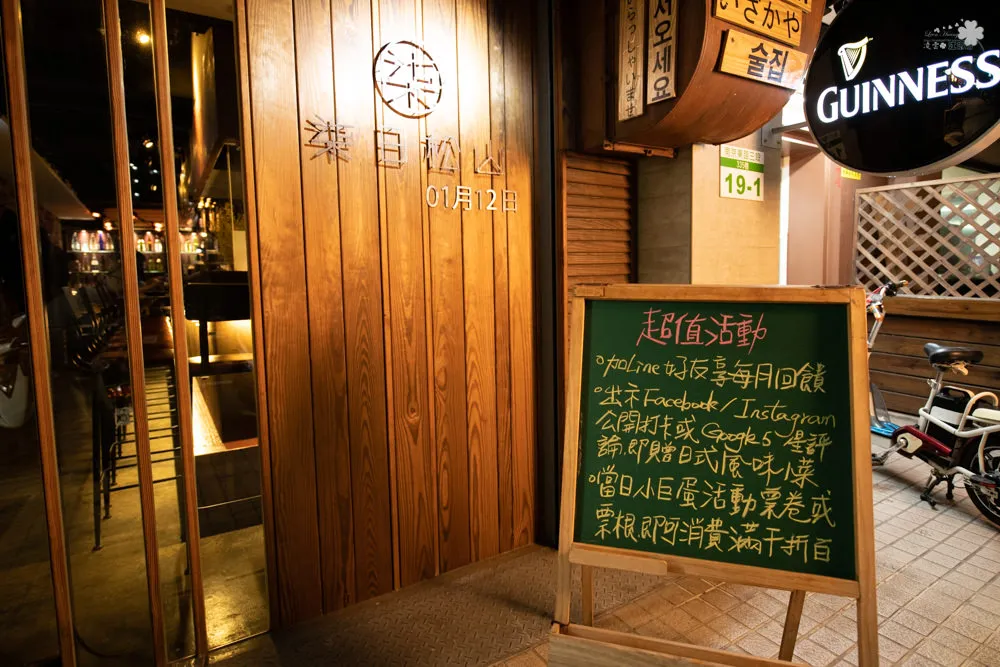 柒
柒日松山
01月12日
らっしゃいませ
서오세요
いざかや
술집
19-1
GUINNESS
超值活動
加Line好友享每月回饋
出示Facebook/Instagram
公開打卡或Google5星評
論,即贈日式風味小菜
當日小巨蛋活動票卷或
票根,即可消費滿千折百